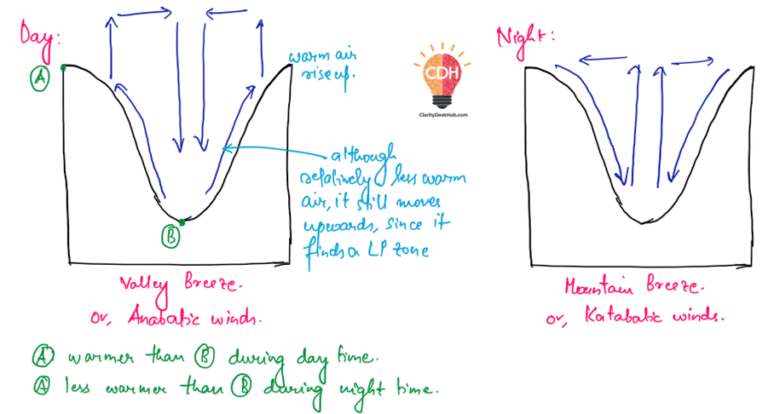 Day:
A
warm air
rise up.
CDH
ClarityDeskHub.com
Night:
although
relatively less warm
air, it still moves
upwards, since it
finds a LP zone
B
Valley Breeze.
Or, Anabatic winds.
Mountain Breeze.
Or, Katabatic winds.
A warmer than B during day time.
A less warmer than B during night time.